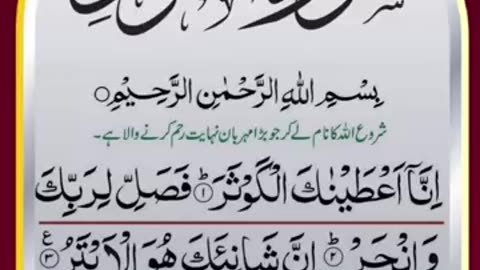 بِسْمِ اللهِ الرَّحْمٰنِ الرَّحِيْمِ○
شروع اللہ کا نام لے کر جو بڑا مہربان نہایت رحم کرنے والا ہے۔
اِنَّاۤ اَعْطَيْنٰكَ الْكَوْثَرَؕ﴿۱﴾ فَصَلِّ لِرَبِّكَ
وَانْحَرْؕ﴿۲﴾ اِنَّ شَانِئَكَ هُوَ الْاَبْتَرُ﴿۳﴾ع